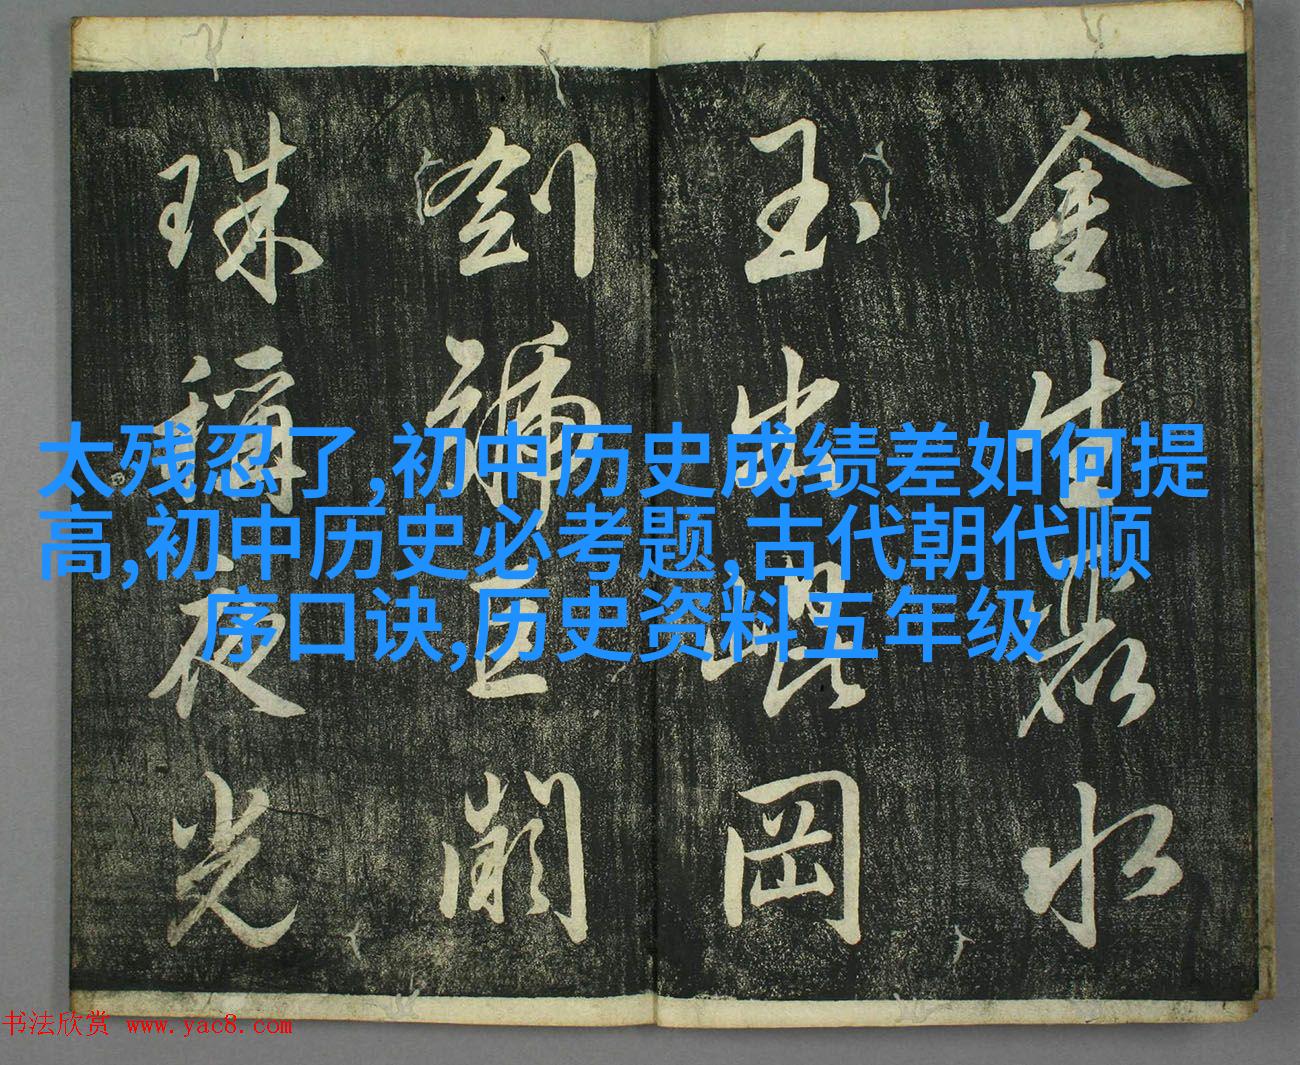 金生麗水
玉出崐岡
劍號巨闕
珠稱夜光
太残忍了,初中历史成绩差如何提
高,初中历史必考题,古代朝代顺
序口诀,历史资料五年级
书法欣赏 www.yac8.com